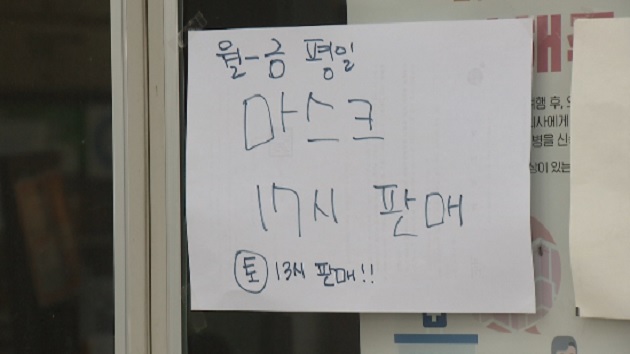 월-금 평일
마스크
17시 판매
토 13시 판매!!
행 후, 의
사에게
병을 신
상이 있는